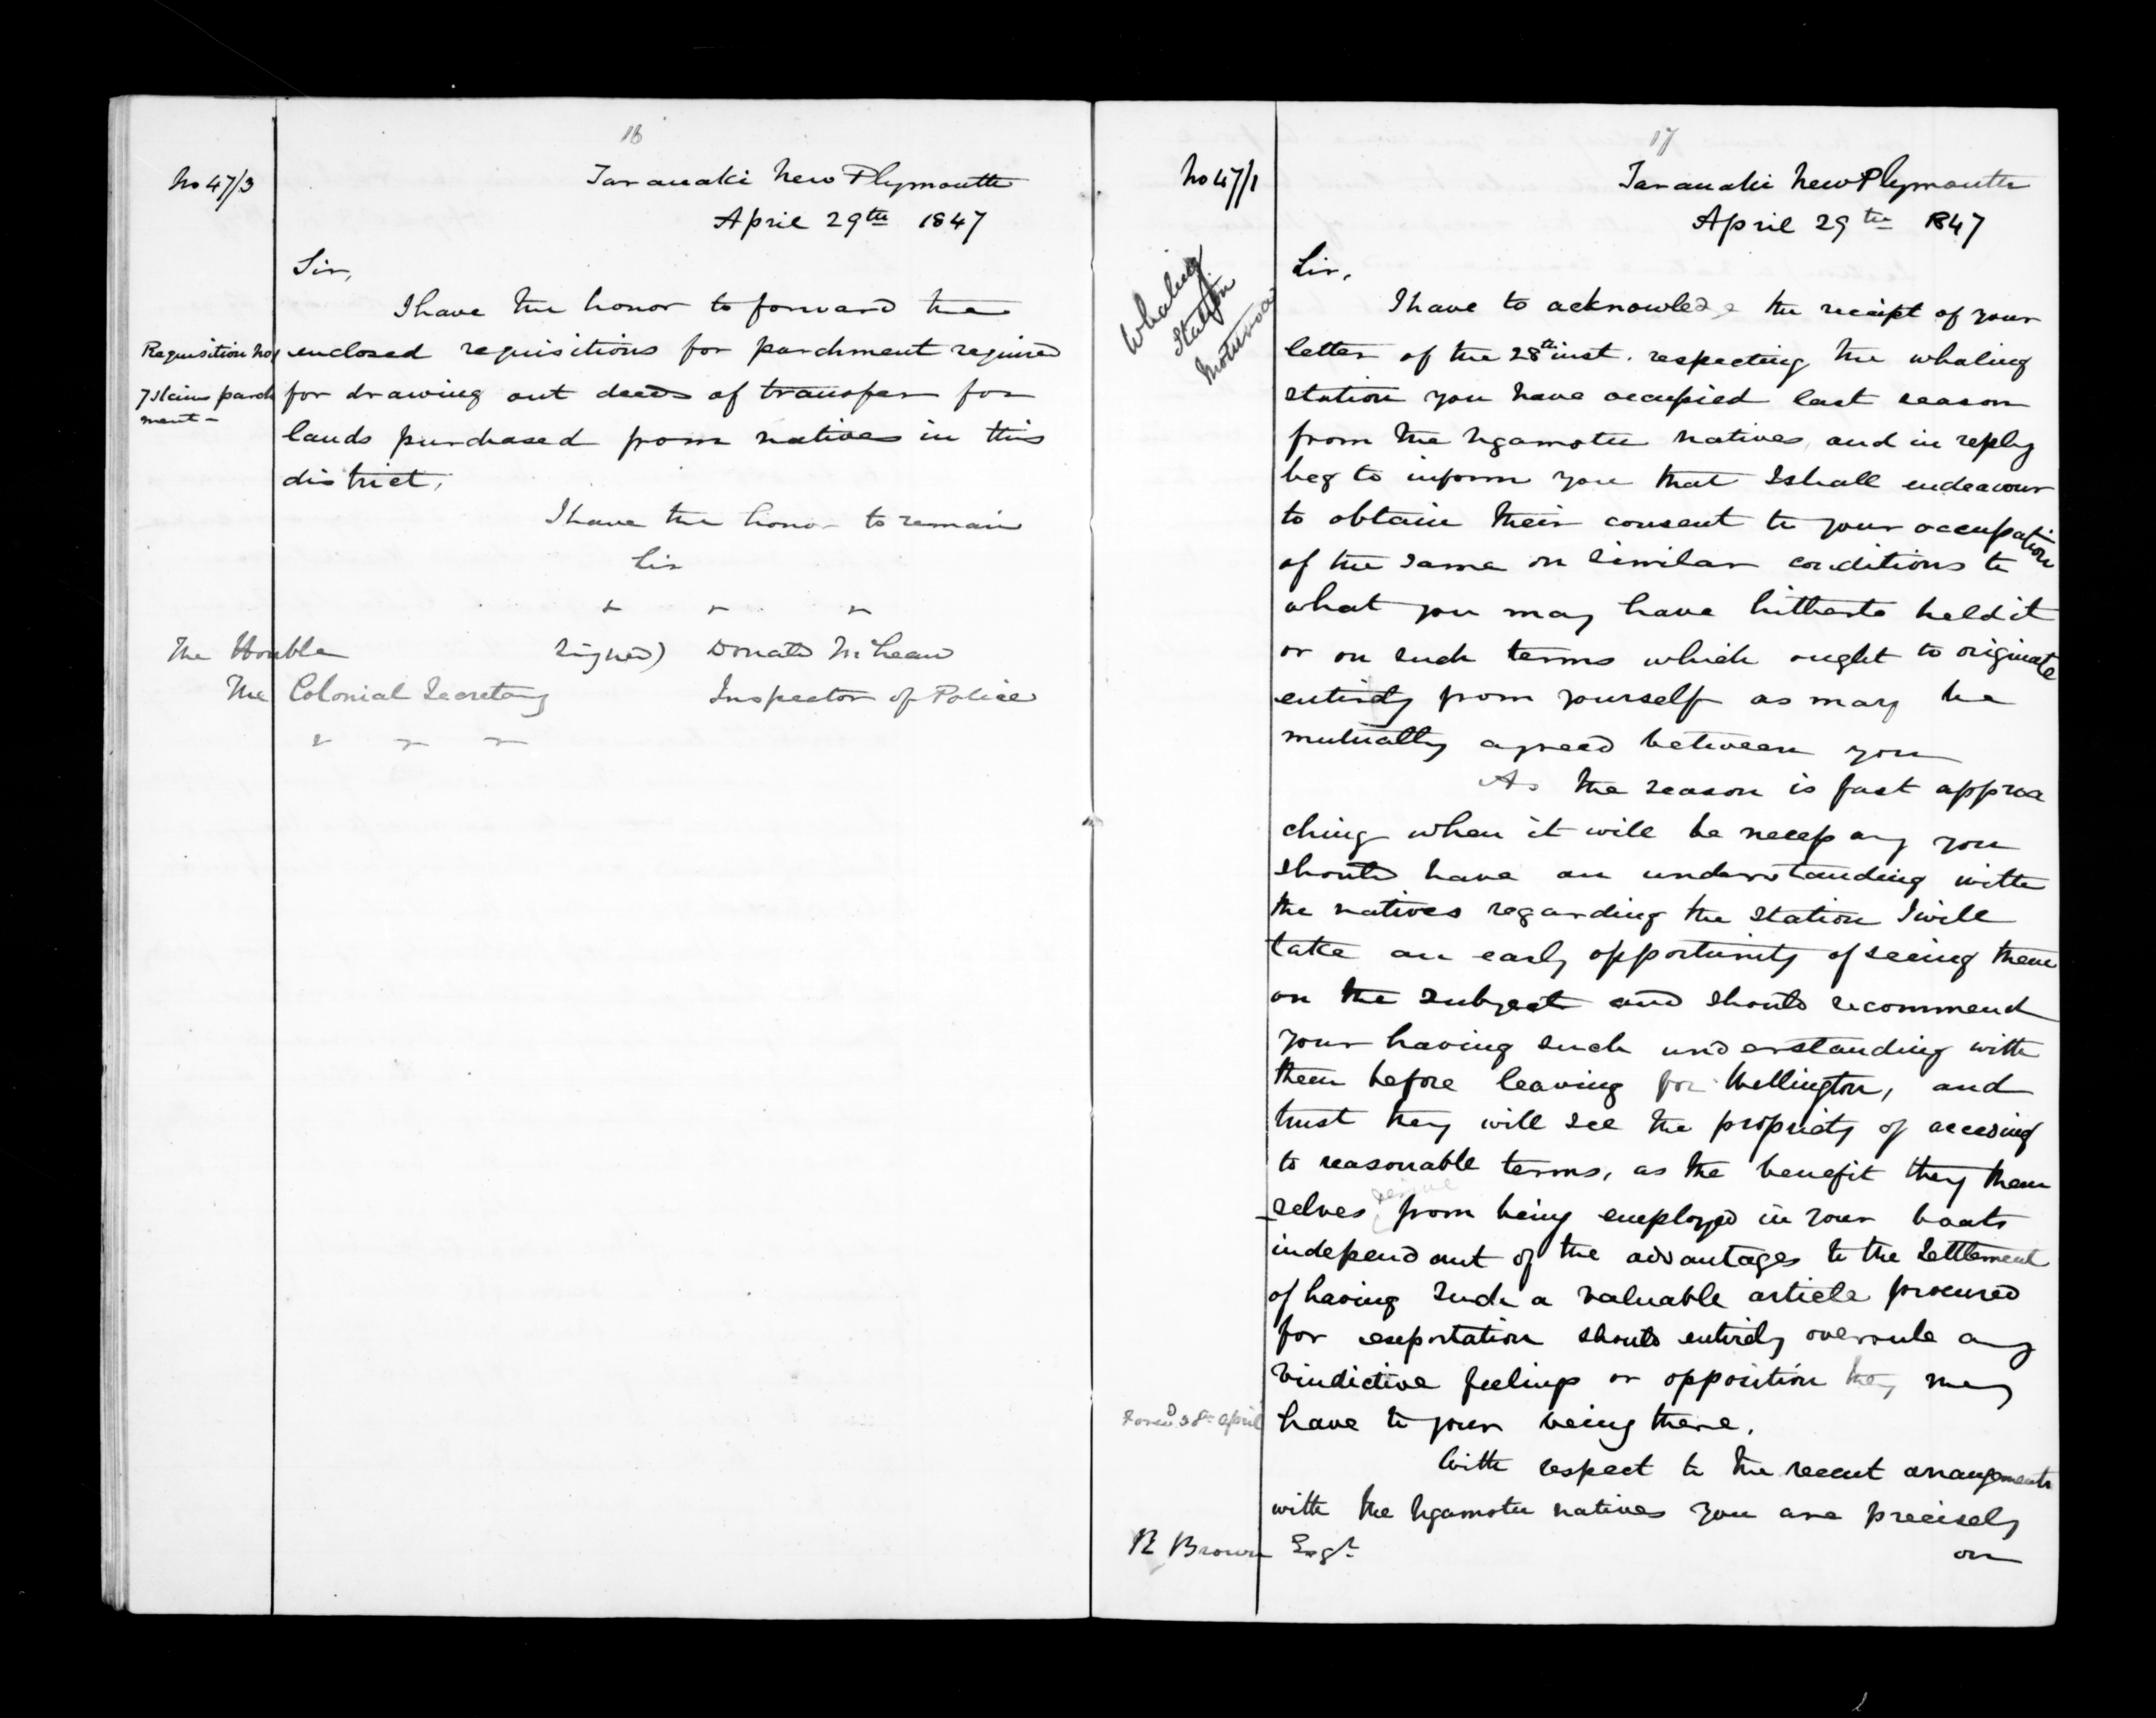 16
No 47/3
Taranaki New Plymouth
April 29th 1847
Sir,
I have the honor to forward the
Requisition No 1
enclosed requisitions for parchment required
7 skins parch
for drawing out deeds of transfer for
ment -
lands purchased from natives in this
district,
I have the honor to remain
Sir
The Honble
signed) Donald McLean
The Colonial Secretary
Inspector of Police
17
No 47/1
Taranaki New Plymouth
April 29th 1847
Whaling
Station
Moturoa
Sir,
I have to acknowledge the receipt of your
letter of the 28th inst. respecting the whaling
station you have occupied last season
from the Ngamotu natives, and in reply
beg to inform you that I shall endeavour
to obtain their consent to your occupation
of the same on similar conditions to
what you may have hitherto held it
or on such terms which ought to originate
entirely from yourself as may be
mutually agreed between you
As the season is fast approa
ching when it will be necessary you
should have an understanding with
the natives regarding the station I will
take an early opportunity of seeing them
on the subject and should recommend
your having such understanding with
them before leaving for Wellington, and
trust they will see the propriety of acceding
to reasonable terms, as the benefit they them
derive
selves from being employed in your boats
independant of the advantages to the Settlement
of having such a valuable article procured
for exportation should entirely overrule any
vindictive feelings or opposition they may
28th April
have to your being there.
With respect to the recent arrangements
with the Ngamotu natives you are precisely
R Brown Esqr
on